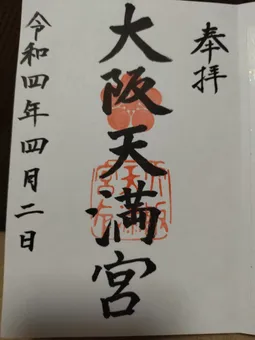 奉拝
大阪天満宮
令和四年四月二日